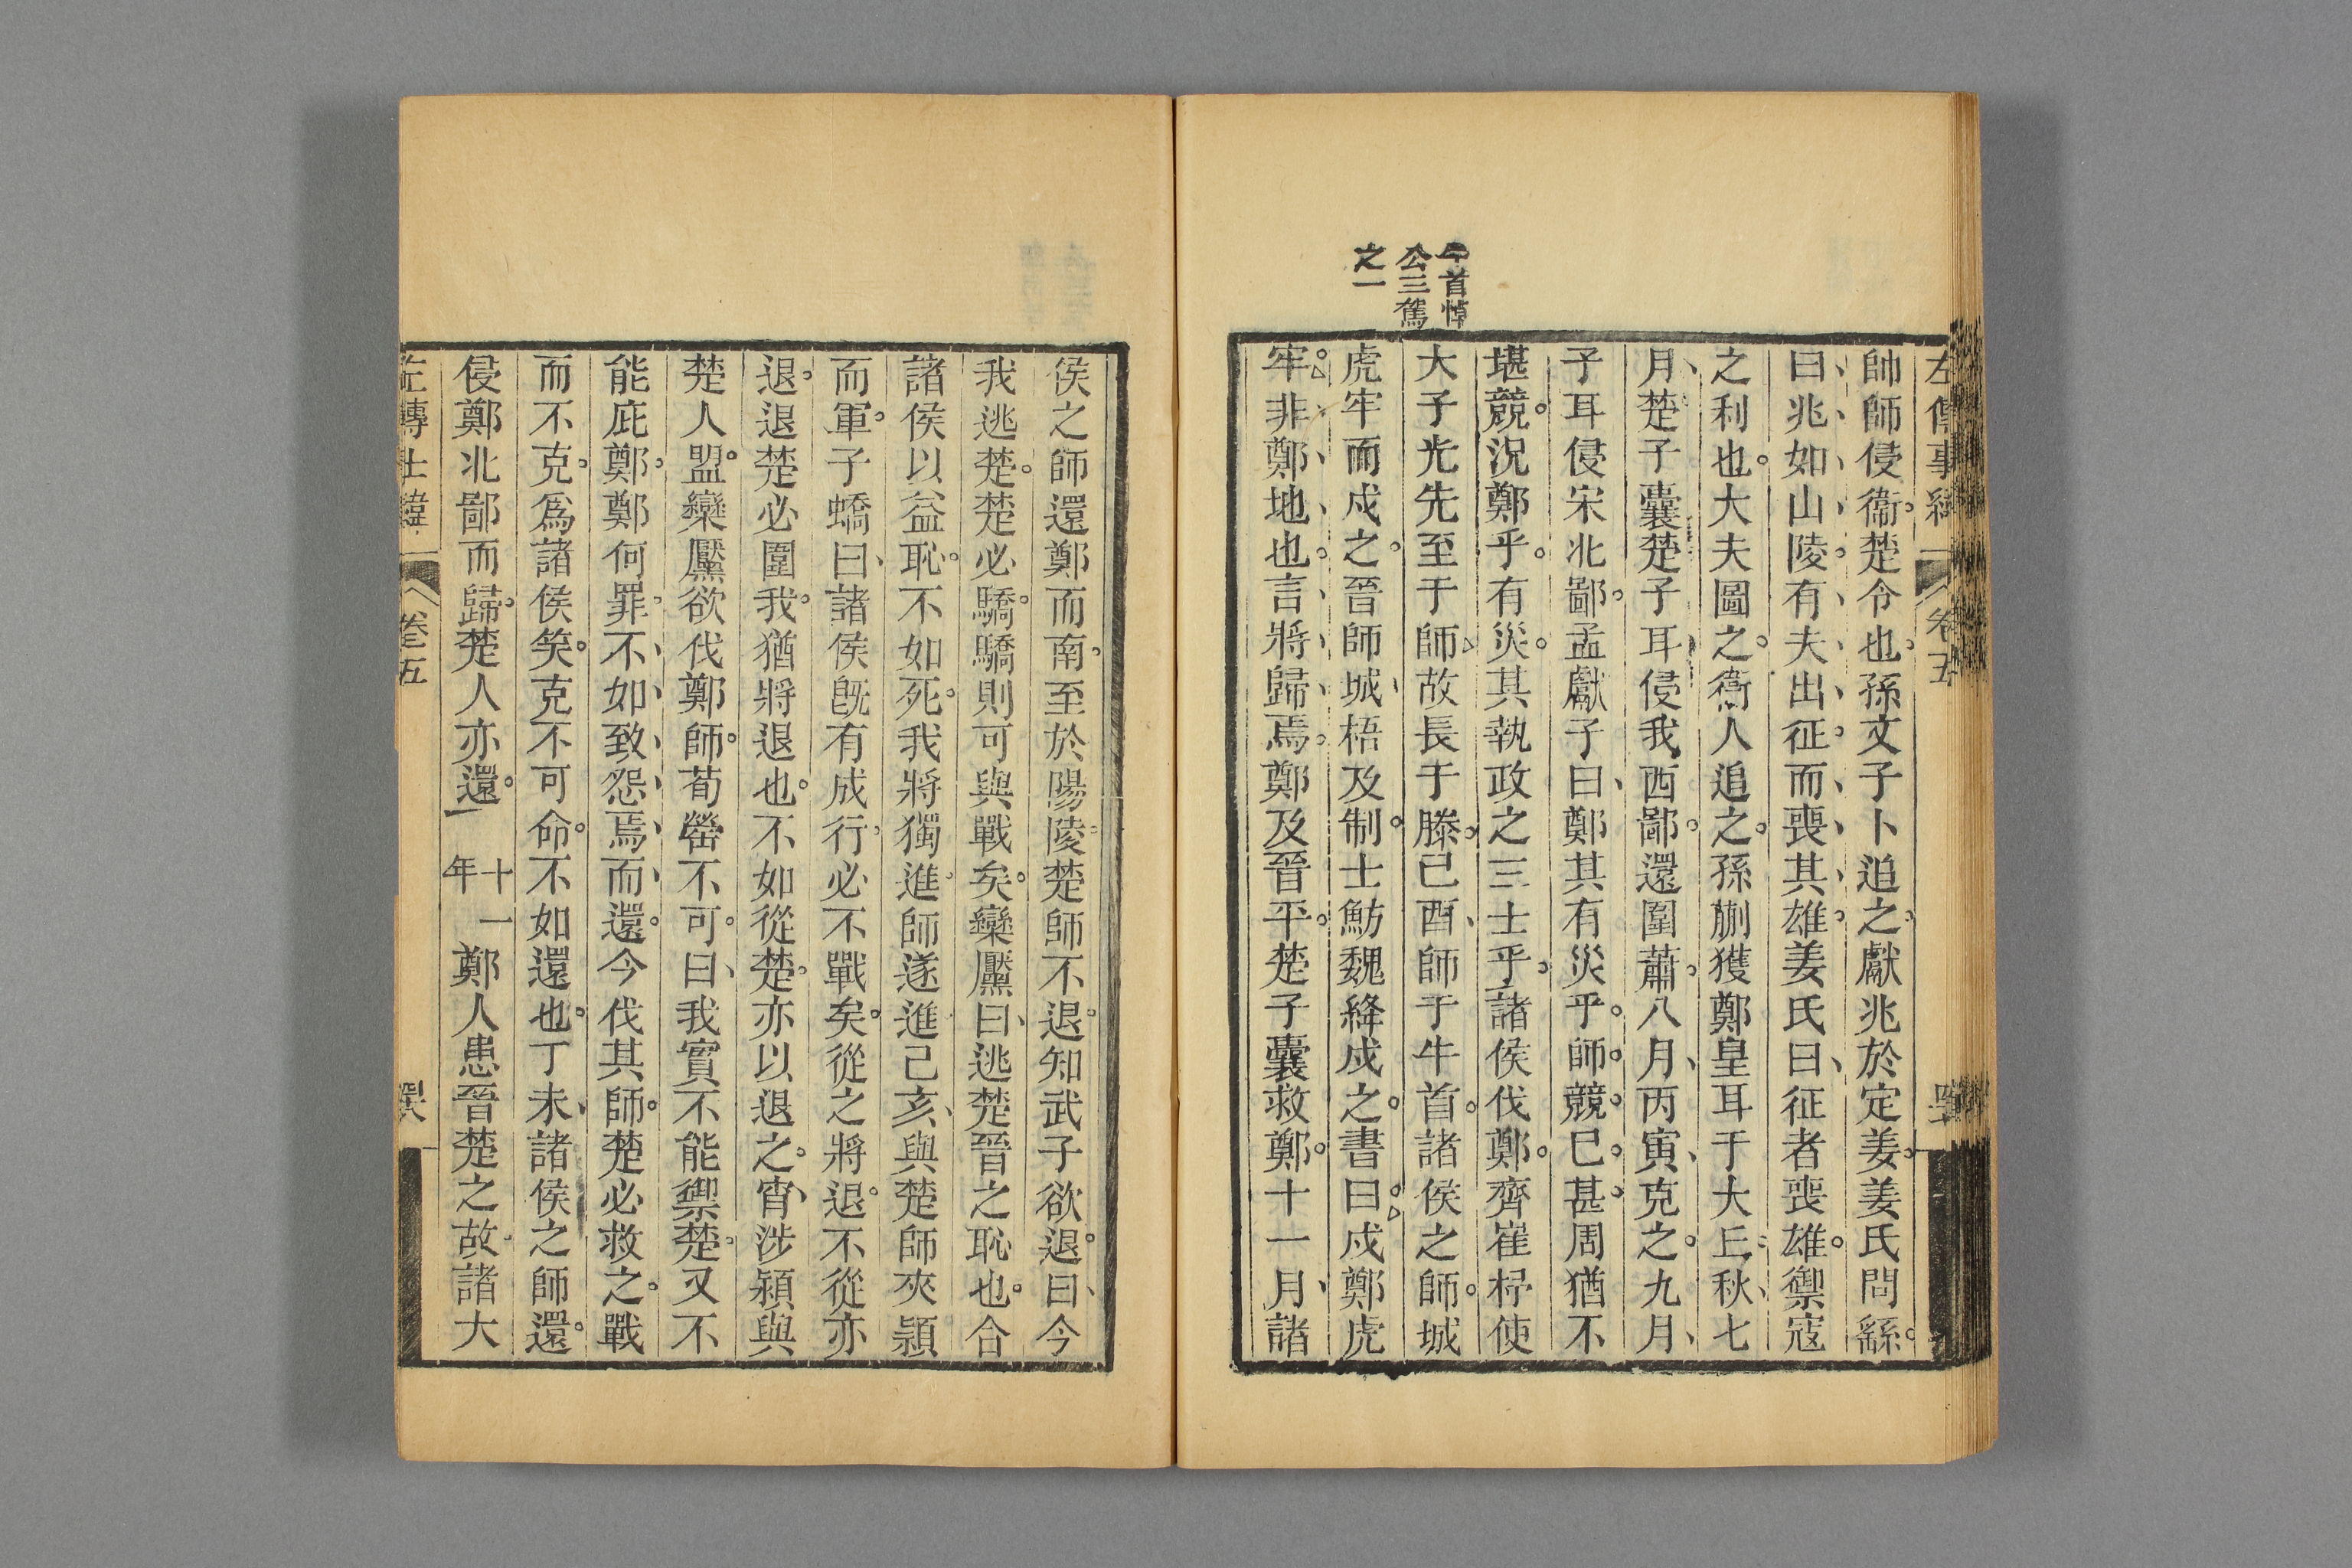 左傳事緯
卷五
帥師侵衞楚令也孫文子卜追之獻兆於定姜姜氏問繇
曰兆如山陵有夫出征而喪其雄姜氏曰征者喪雄禦寇
之利也大夫圖之衞人追之孫蒯獲鄭皇耳于大丘秋七
月楚子囊楚子耳侵我西鄙還圍蕭八月丙寅克之九月
子耳侵宋北鄙孟獻子曰鄭其有災乎師競已甚周猶不
堪競況鄭乎有災其執政之三士乎諸侯伐鄭齊崔杼使
大子光先至于師故長于滕己酉師于牛首諸侯之師城
虎牢而戍之晉師城梧及制士魴魏絳戍之書曰戍鄭虎
牢非鄭地也言將歸焉鄭及晉平楚子囊救鄭十一月諸
牛首悼
公三駕
之一
侯之師還鄭而南至於陽陵楚師不退知武子欲退曰今
我逃楚楚必驕驕則可與戰矣欒黶曰逃楚晉之恥也合
諸侯以益恥不如死我將獨進師遂進己亥與楚師夾潁
而軍子蟜曰諸侯旣有成行必不戰矣從之將退不從亦
退退楚必圍我猶將退也不如從楚亦以退之宵涉潁與
楚人盟欒黶欲伐鄭師荀罃不可曰我實不能禦楚又不
能庇鄭鄭何罪不如致怨焉而還今伐其師楚必救之戰
而不克爲諸侯笑克不可命不如還也丁未諸侯之師還
侵鄭北鄙而歸楚人亦還 十一年 鄭人患晉楚之故諸大
卷五